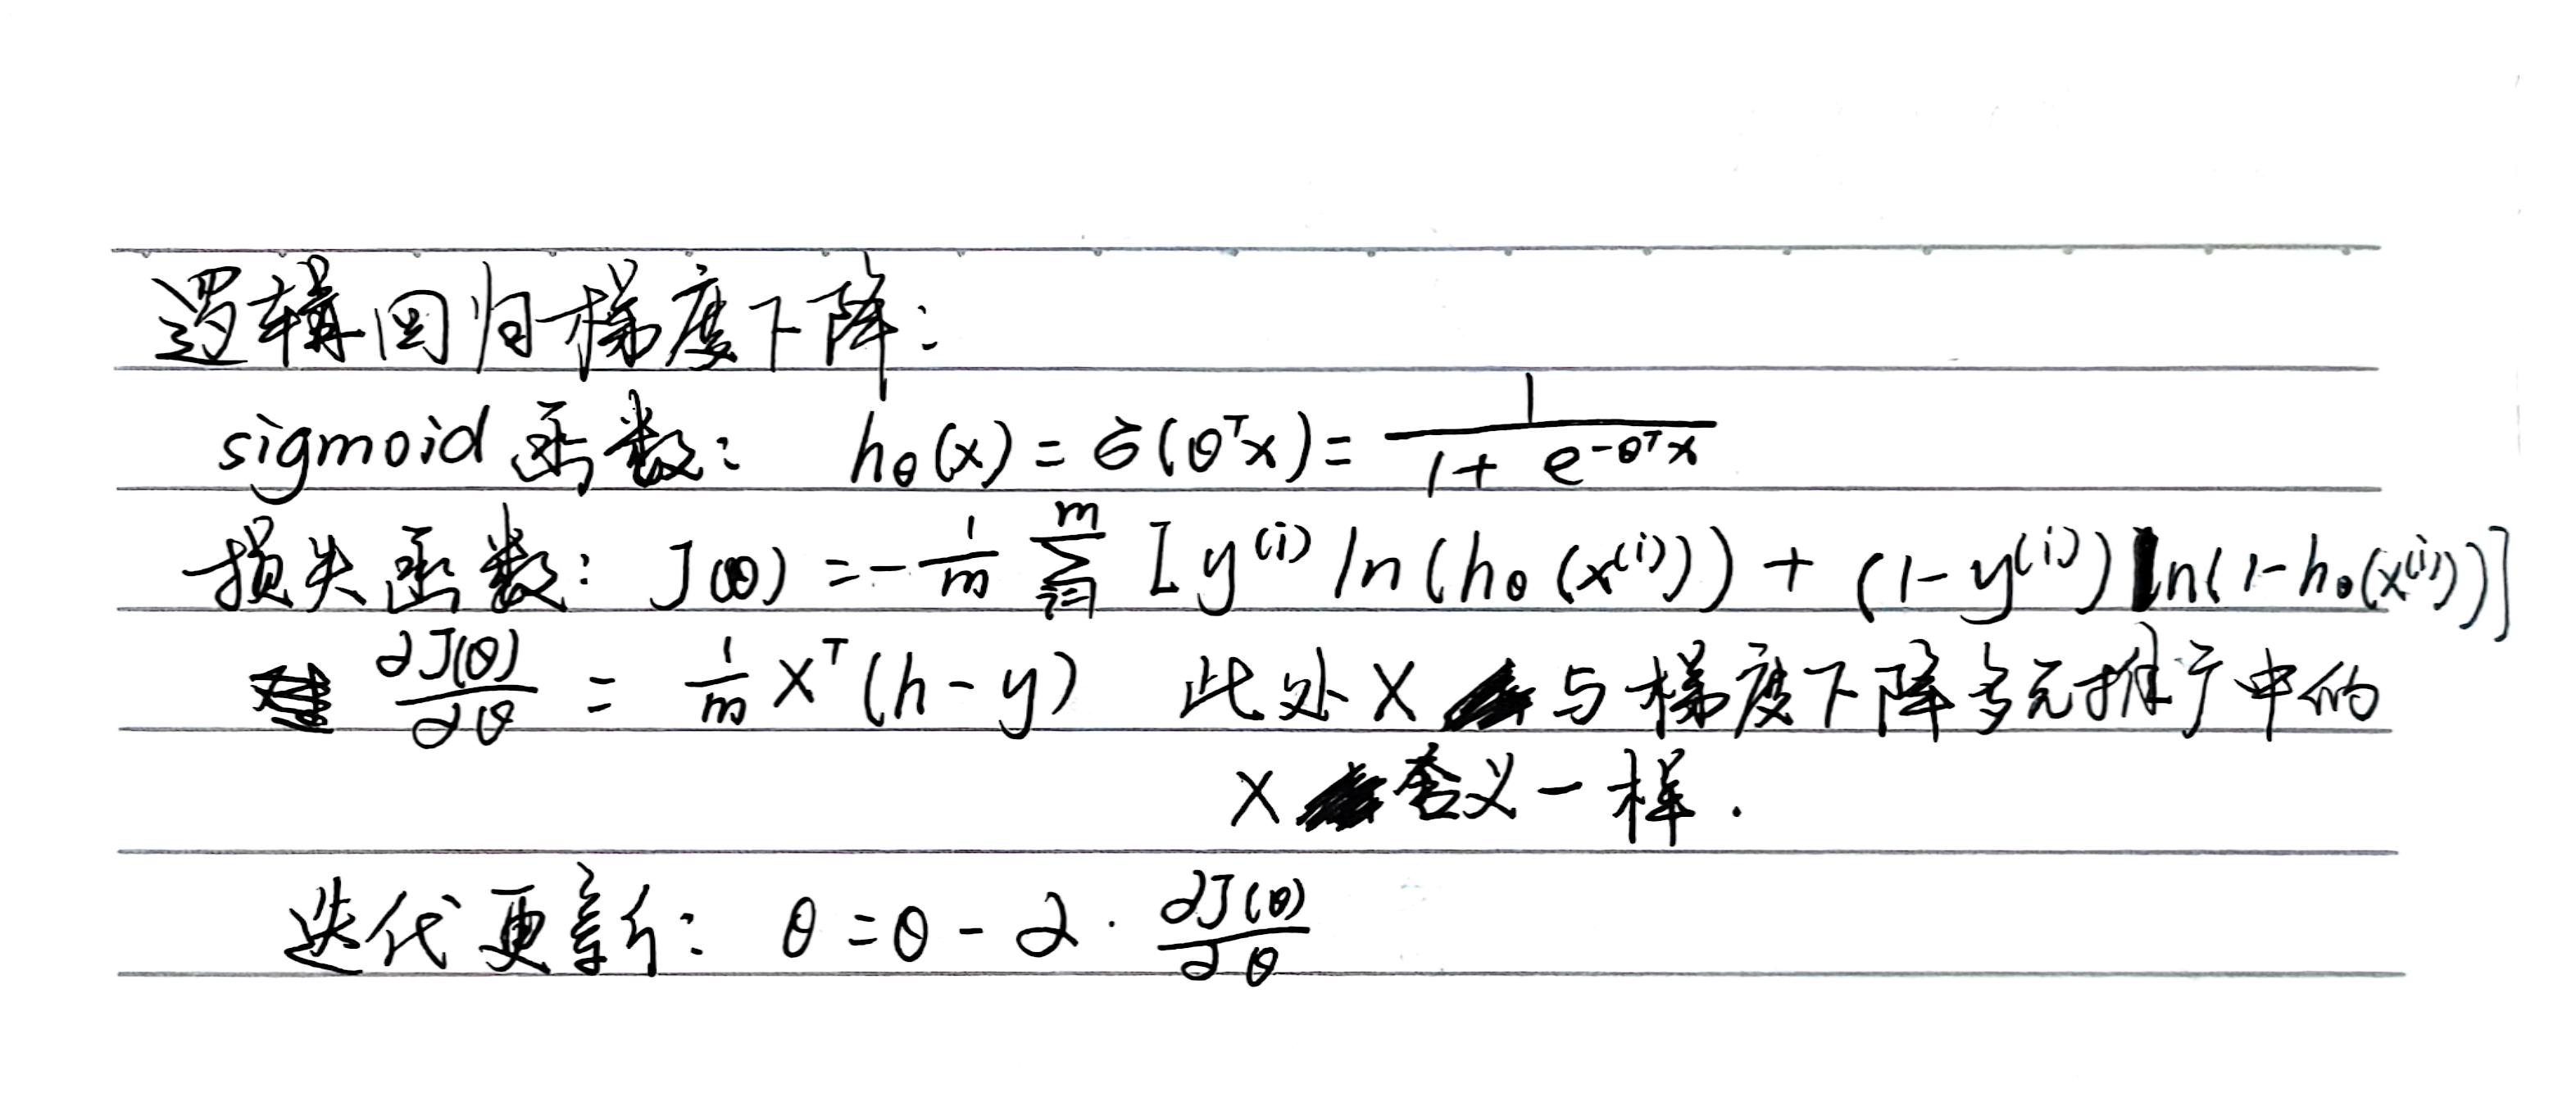 逻辑回归梯度下降:
sigmoid 函数: hθ(x) = σ(θᵀx) = 1/(1 + e^(-θᵀx))
损失函数: J(θ) = -1/m Σ_{i=1}^{m} [y⁽ⁱ⁾ ln(hθ(x⁽ⁱ⁾)) + (1-y⁽ⁱ⁾) ln(1-hθ(x⁽ⁱ⁾))]
∂J(θ)/∂θ = 1/m Xᵀ(h-y) 此处X与梯度下降多元推广中的
X含义一样.
迭代更新: θ = θ - α · ∂J(θ)/∂θ